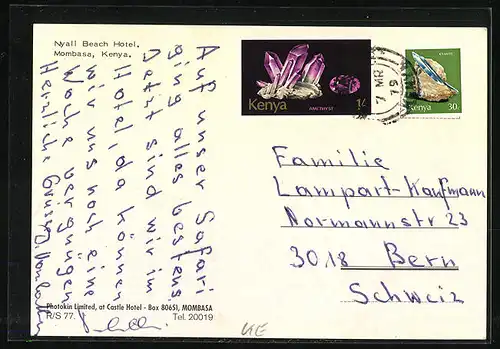 Nyall Beach Hotel,
Mombasa, Kenya.
Auf unser Safari
ging alles bestens.
Jetzt sind wir im
Hotel, da können
wir uns noch eine
Woche vergnügen
Herzliche Grüsse
Kenya
AMETHYST
1/-
7 MR
79
KYANITE
Kenya
30c
Familie
Lampart-Kaufmann
Normannstr 23
3018 Bern
Schweiz
Photokin Limited, at Castle Hotel - Box 80651, MOMBASA
R/S 77.
Tel. 20019
KE